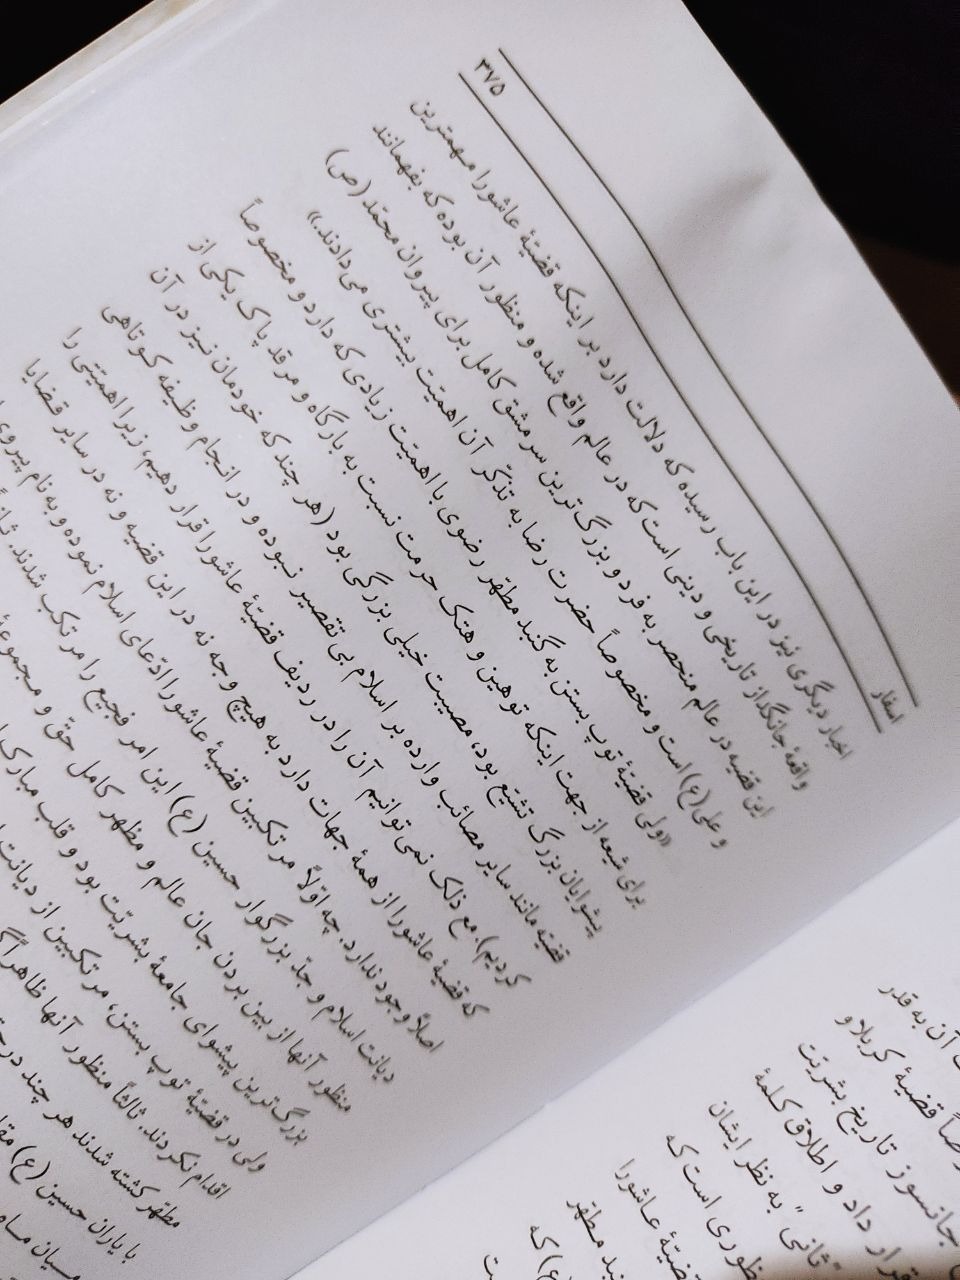 ۳۷۵
اسفار
اخبار دیگری نیز در این باب رسیده که دلالت دارد بر اینکه قضیّهٔ عاشورا مهمترین
واقعهٔ جانگداز تاریخی و دینی است که در عالم واقع شده و منظور آن بوده که بفهمانند
این قضیه در عالم منحصر به فرد و بزرگ‌ترین سرمشق کامل برای پیروان محمّد (ص)
و علی (ع) است و مخصوصاً حضرت رضا به تذکّر آن اهمیّت بیشتری می‌دادند.»
«ولی قضیّهٔ توپ بستن به گنبد مطهّر رضوی با اهمیّت زیادی که دارد و مخصوصاً
برای شیعه از جهت اینکه توهین و هتک حرمت نسبت به بارگاه و مرقد پاک یکی از
پیشوایان بزرگ تشیّع بود، مصیبت خیلی بزرگی بود (هر چند که خودمان نیز در آن
قضیّه مانند سایر مصائب وارده بر اسلام بی‌تقصیر نبوده و در انجام وظیفه کوتاهی
کردیم) مع ذلک نمی‌توانیم آن را در ردیف قضیّهٔ عاشورا قرار دهیم، زیرا اهمیّتی را
که قضیّهٔ عاشورا از همهٔ جهات دارد به هیچ وجه نه در این قضیه و نه در سایر قضایا
اصلاً وجود ندارد. چه اوّلاً مرتکبین قضیّهٔ عاشورا ادّعای اسلام نموده و به نام پیروی
دیانت اسلام و جدّ بزرگوار حسین (ع) این امر فجیع را مرتکب شدند.
منظور آنها از بین بردن جان عالم و مظهر کامل حقّ و
بزرگ‌ترین پیشوای جامعهٔ بشریّت بود و قلب مبارک
ولی در قضیّهٔ توپ بستن، مرتکبین از دیانت
اقدام نکردند. ثالثاً منظور آنها ظاهراً
مطهّر کشته شدند هر چند
با یاران حسین (ع)
میان
آن به قدر
قضیّهٔ کربلا و
جانسوز تاریخ بشریّت
قرار داد و اطلاق کلمهٔ
"ثانی" به نظر ایشان
است که
قضیّهٔ عاشورا
مطهّر
(ع) که